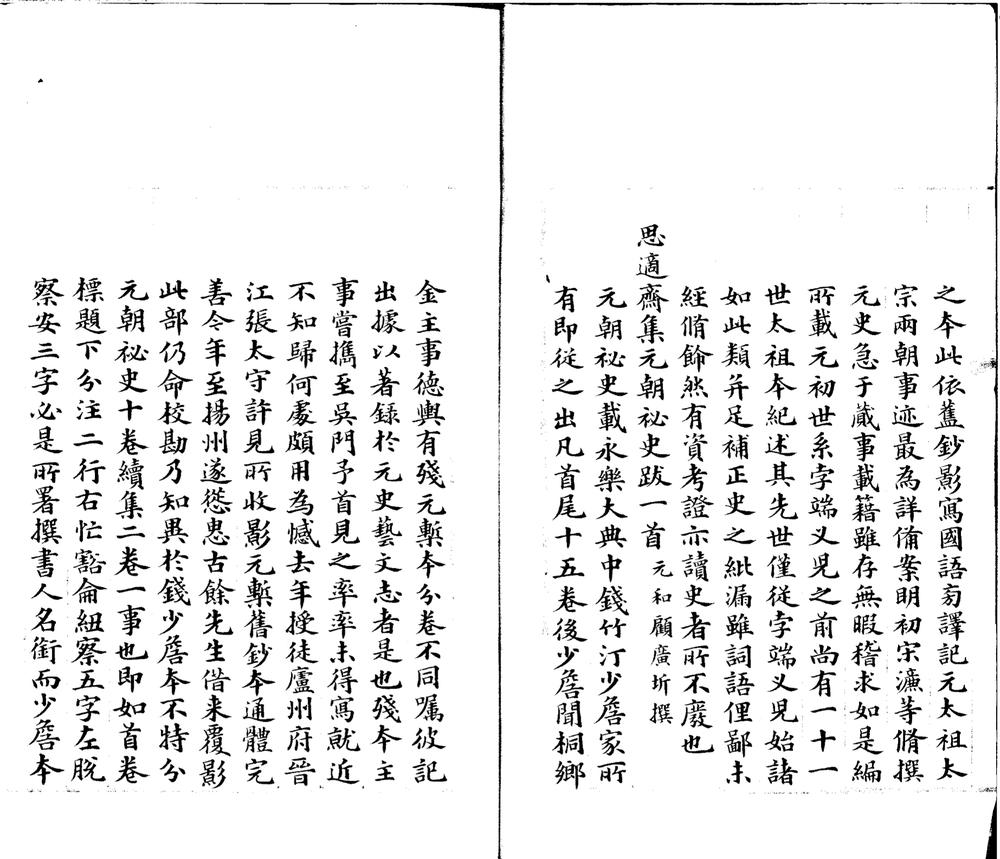 之本此依舊鈔影寫國語旁譯記元太祖太
宗兩朝事迹最為詳備案明初宋濂等脩撰
元史急于蕆事載籍雖存無暇稽求如是編
所載元初世系孛端义児之前尚有一十一
世太祖本紀述其先世僅從孛端义児始諸
如此類并足補正史之紕漏雖詞語俚鄙未
經脩飾然有資考證亦讀史者所不廢也
思適齋集元朝祕史跋一首 元和顧廣圻撰
元朝祕史載永樂大典中錢竹汀少詹家所
有即從之出凡首尾十五卷後少詹聞桐鄉
金主事德輿有殘元槧本分卷不同囑彼記
出據以著錄於元史藝文志者是也殘本主
事嘗攜至吳門予首見之率率未得寫就近
不知歸何處頗用為憾去年授徒廬州府晉
江張太守許見所收影元槧舊鈔本通體完
善今年至揚州遂慫恿古餘先生借来覆影
此部仍命校勘乃知異於錢少詹本不特分
元朝祕史十卷續集二卷一事也即如首卷
標題下分注二行右忙豁侖紐察五字左脫
察安三字必是所署撰書人名銜而少詹本